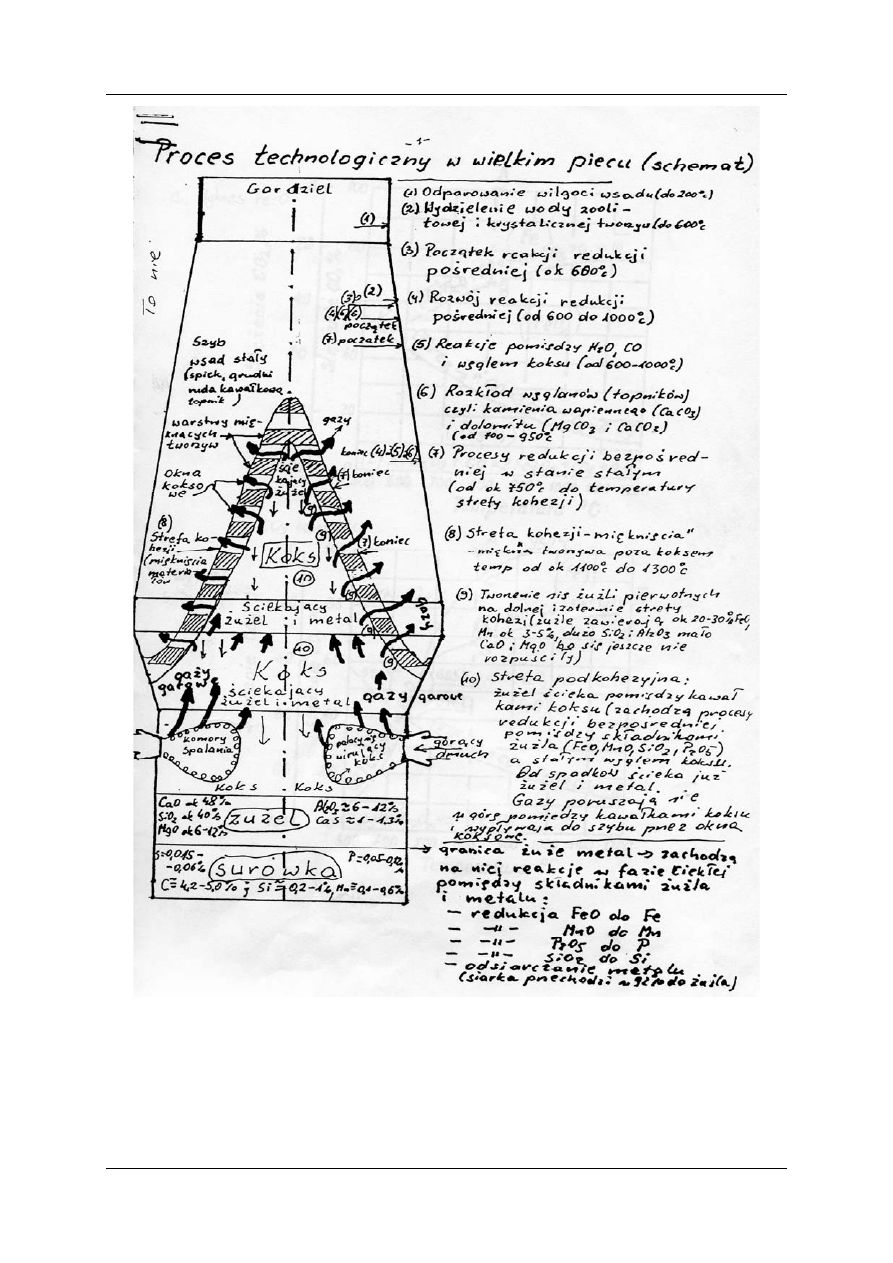 -1-
Proces technologiczny w wielkim piecu (schemat)
Gardziel
(1)
(1) Odparowanie wilgoci wsadu (do 200°c)
(2) Wydzielenie wody zooli-
towej i krystalicznej tworzyw (do 600°c
(3) Początek reakcji redukcji
pośredniej (ok 600°c)
(4) Rozwój reakcji redukcji
pośredniej (od 600 do 1000°c)
(5) Reakcje pomiędzy H2O, CO
i węglem koksu (od 600-1000°c)
(6) Rozkład węglanów (topników)
czyli kamienia wapiennego (CaCO3)
i dolomitu (MgCO3 i CaCO3)
(od 700-950°c
(7) Procesy redukcji bezpośred-
niej w stanie stałym
(od ok 750°c do temperatury
strefy kohezji)
(8) Strefa kohezji-mięknięcia"
-mięknie tworzywa poza koksem
temp od ok 1100°c do 1300°c
(9) Tworzenie się żużli pierwotnych
na dolnej izotermie strefy
kohezji (żużle zawierają ok 20-30% FeO,
Mn ok 3-5%, dużo SiO2 i Al2O3 mało
CaO i MgO bo się jeszcze nie
rozpuściły)
(10) Strefa podkohezyjna:
żużel ścieka pomiędzy kawał
kami koksu (zachodzą procesy
redukcji bezpośredniej
pomiędzy składnikami
żużla (FeO, MnO, SiO2, P2O5)
a stałym węglem koksu.
Od spadków ścieka już
żużel i metal.
Gazy poruszają się
w górę pomiędzy kawałkami koksu
i wypływają do szybu przez okna
koksowe.
granica żużel metal → zachodzą
na niej reakcje w fazie ciekłej
pomiędzy składnikami żużla
i metalu:
- redukcja FeO do Fe
- -"- MnO do Mn
- -"- P2O5 do P
- -"- SiO2 do Si
- odsiarczanie metalu
(siarka przechodzi z do żużla)
(3) (2)
(4)(5)(6)
początek
(7) początek
Szyb
wsad stały
(spiek, grudki
ruda kawałkowa
topnik )
warstwy mię-
knących
tworzyw
gazy
koniec (4)(5)(6)
(7) koniec
Okna
kokso
we
ście
kający
żużel
(9)
(8)
Strefa ko-
hezji
(mięknięcia
materia-
łów
(9)
(7) koniec
Koks
(10)
(9)
Ściekający
żużel i metal
gazy
(9)
(10)
Koks
(9)
gazy
garowe
ściekający
żużel i metal
gazy garowe
komory
spalania
wirujący
koks
gorący
dmuch
koks koks
CaO ok 48%
SiO2 ok 40%
MgO ok 6-12%
żużel
Al2O3 ≈ 6-12%
CaS ≈ 1-1,3%
S=0,015-
-0,06%
surówka
C=4,2-5,0% ; Si = 0,2-1%, Mn=0,1-0,6%